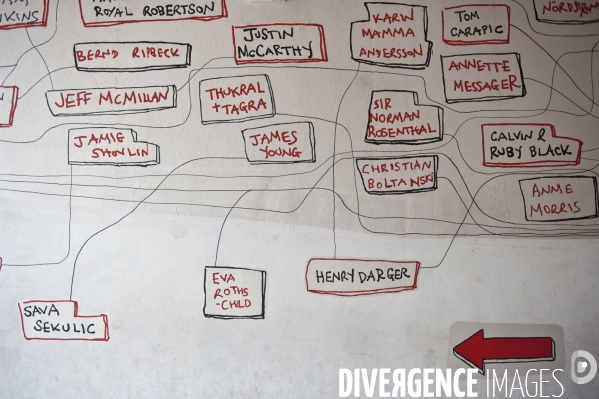 ROYAL ROBERTSON
BERND RIBBECK
JEFF MCMILLAN
JAMIE
SHOVLIN
JUSTIN
McCARTHY
THUKRAL
+ TAGRA
JAMES
YOUNG
KARIN
MAMMA
ANDERSSON
SIR
NORMAN
ROSENTHAL
CHRISTIAN
BOLTANSKI
TOM
CARAPIC
ANNETTE
MESSAGER
CALVIN &
RUBY BLACK
ANNIE
MORRIS
EVA
ROTHS
-CHILD
HENRY DARGER
SAVA
SEKULIC
DIVERGENCE IMAGES